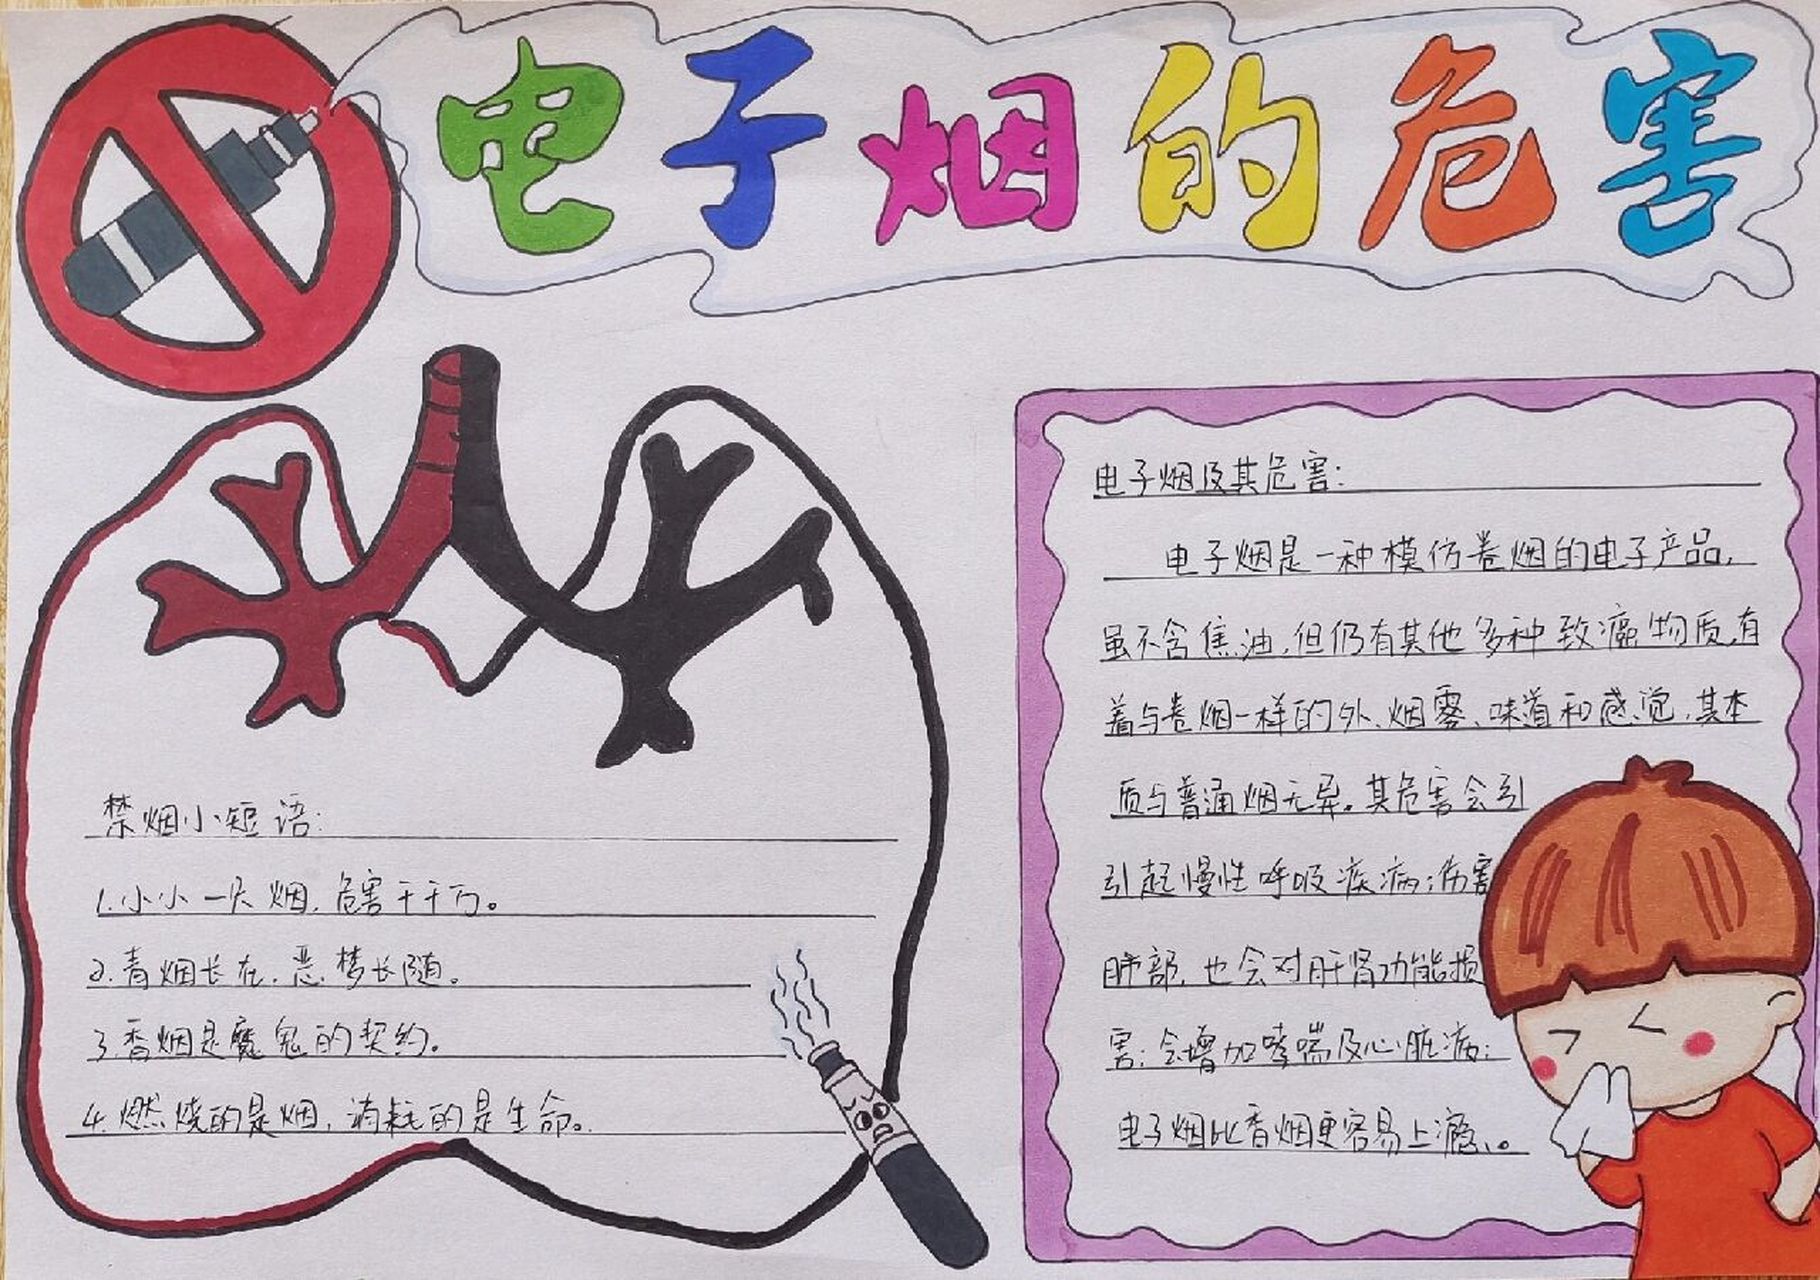 电子烟的危害
禁烟小短语:
1.小小一片烟,危害千千万。
2.青烟长在,恶梦长随。
3.香烟是魔鬼的契约。
4.燃烧的是烟,消耗的是生命。
电子烟及其危害:
电子烟是一种模仿卷烟的电子产品,
虽不含焦油,但仍有其他多种致癌物质,有
着与卷烟一样的外、烟雾、味道和感觉,其本
质与普通烟无异。其危害会引
引起慢性呼吸疾病;伤害
肺部,也会对肝肾功能损
害;会增加哮喘及心脏病;
电子烟比香烟更容易上瘾、。